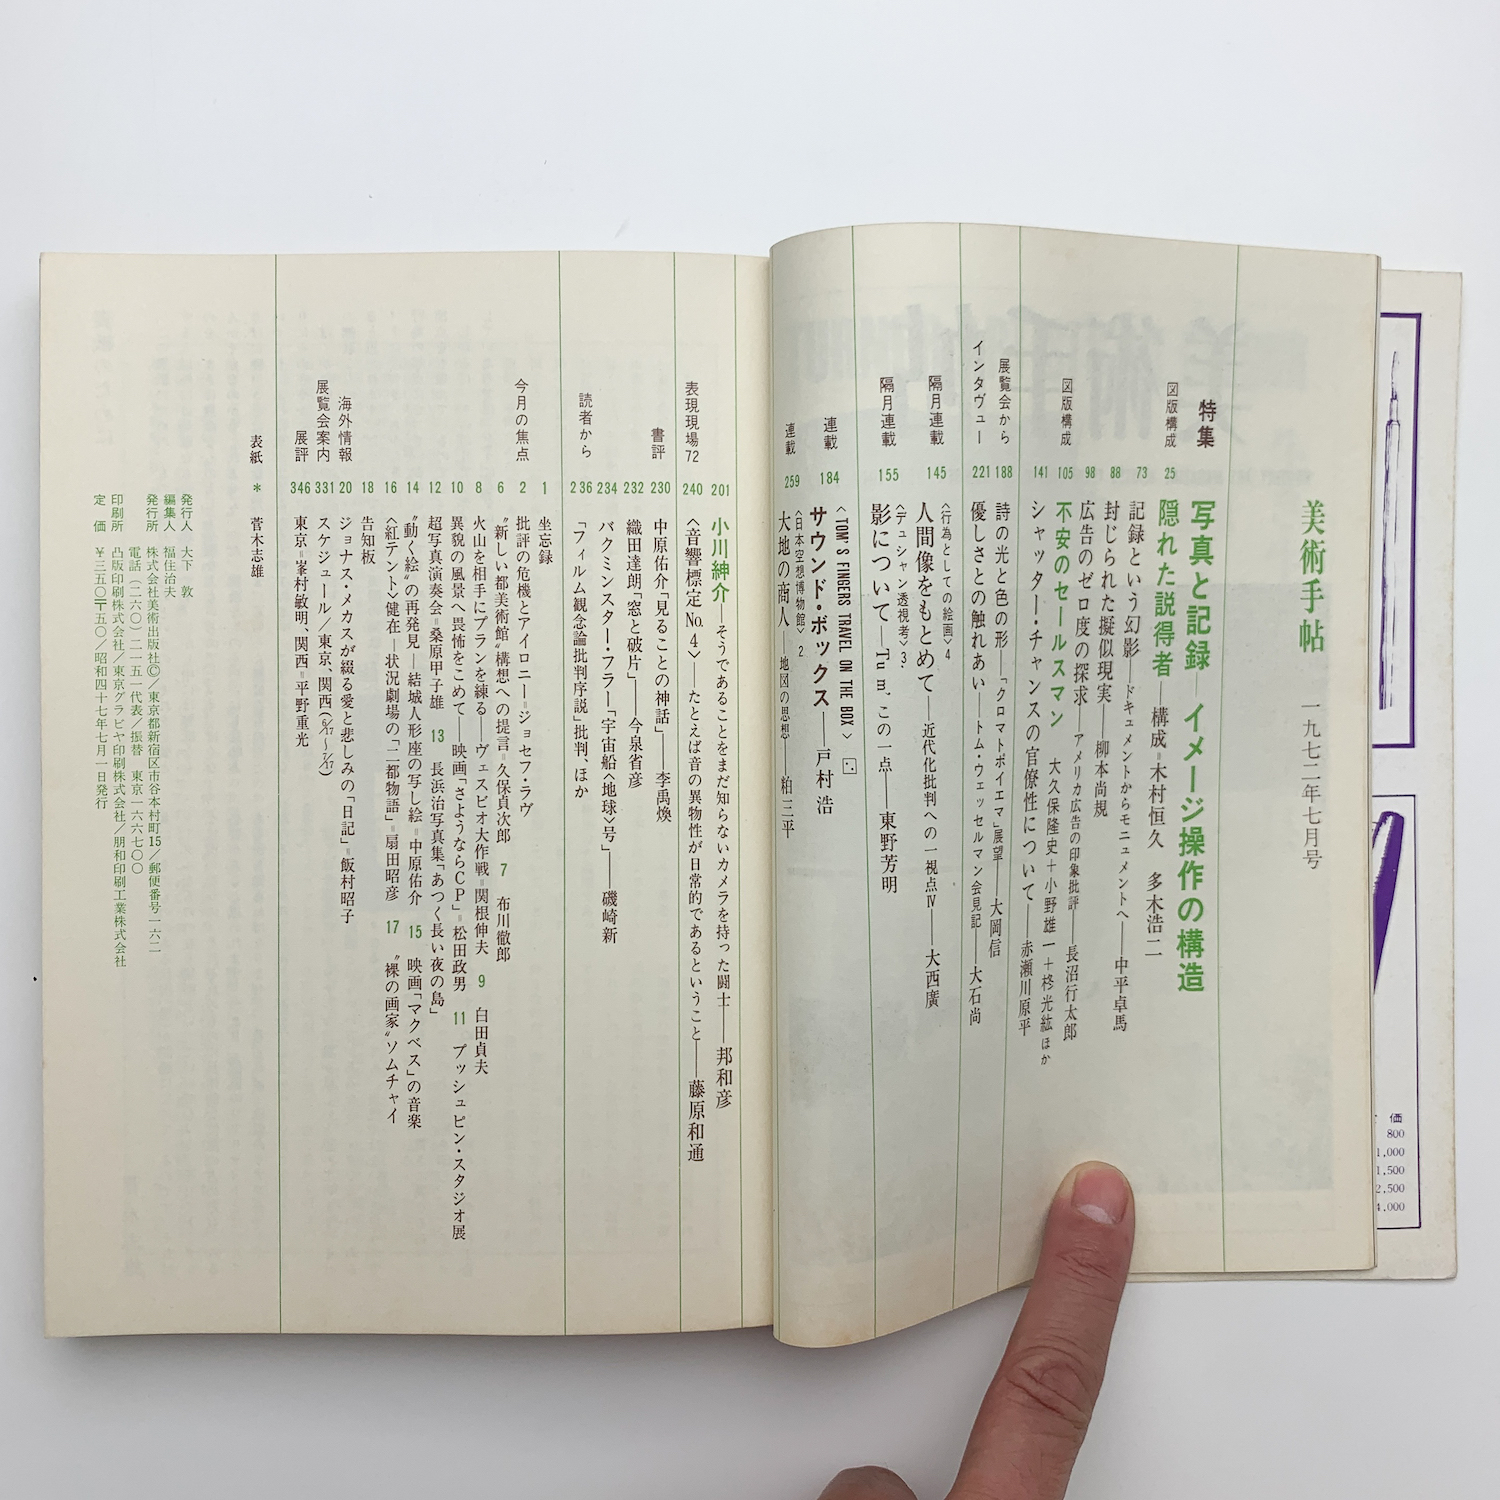 美術手帖 一九七二年七月号
特集 写真と記録―イメージ操作の構造
図版構成 25 隠れた説得者―構成=木村恒久 多木浩二
73 記録という幻影―ドキュメントからモニュメントへ―中平卓馬
88 封じられた擬似現実―柳本尚規
98 広告のゼロ度の探求―アメリカ広告の印象批評―長沼行太郎
図版構成 105 不安のセールスマン 大久保隆史+小野雄一+柊光紘ほか
141 シャッター・チャンスの官僚性について―赤瀬川原平
展覧会から 188 詩の光と色の形―「クロマトポイエマ」展望―大岡信
インタヴュー 221 優しさとの触れあい―トム・ウェッセルマン会見記―大石尚
〈行為としての絵画〉4
隔月連載 145 人間像をもとめて―近代化批判への一視点Ⅳ―大西廣
〈デュシャン透視考〉3
隔月連載 155 影について―Tu m'、この一点―東野芳明
〈TOM'S FINGERS TRAVEL ON THE BOX〉
連載 184 サウンド・ボックス―戸村浩
〈日本空想博物館〉2
連載 259 大地の商人―地図の思想―粕三平
201 小川紳介―そうであることをまだ知らないカメラを持った闘士―邦和彦
表現現場72 240 〈音響標定No.4〉―たとえば音の異物性が日常的であるということ―藤原和通
書評 230 中原佑介「見ることの神話」―李禹煥
232 織田達朗「窓と破片」―今泉省彦
234 バクミンスター・フラー「宇宙船〈地球〉号」―磯崎新
読者から 236 「フィルム観念論批判序説」批判、ほか
1 坐忘録
今月の焦点 2 批評の危機とアイロニー=ジョセフ・ラヴ
6 〝新しい都美術館〟構想への提言=久保貞次郎 7 布川徹郎
8 火山を相手にプランを練る―ヴェスビオ大作戦=関根伸夫 9 白田貞夫
10 異貌の風景へ畏怖をこめて―映画「さようならCP」=松田政男 11 プッシュピン・スタジオ展
12 超写真演奏会=桑原甲子雄 13 長浜治写真集「あつく長い夜の島」
14 〝動く絵〟の再発見―結城人形座の写し絵=中原佑介 15 映画「マクベス」の音楽
16 〈紅テント〉健在―状況劇場の「二都物語」=扇田昭彦 17 〝裸の画家〟ソムチャイ
18 告知板
海外情報 20 ジョナス・メカスが綴る愛と悲しみの「日記」=飯村昭子
展覧会案内 331 スケジュール/東京、関西(6/17〜7/17)
展評 346 東京=峯村敏明、関西=平野重光
表紙 * 菅木志雄
発行人 大下 敦
編集人 福住治夫
発行所 株式会社美術出版社©/東京都新宿区市谷本村町15/郵便番号一六二
電話(二六〇)二一五一代表/振替 東京一六六七〇〇
印刷所 凸版印刷株式会社/東京グラビヤ印刷株式会社/朋和印刷工業株式会社
定 価 ¥三五〇〒五〇/昭和四十七年七月一日発行
価
800
1,000
1,500
2,500
4,000